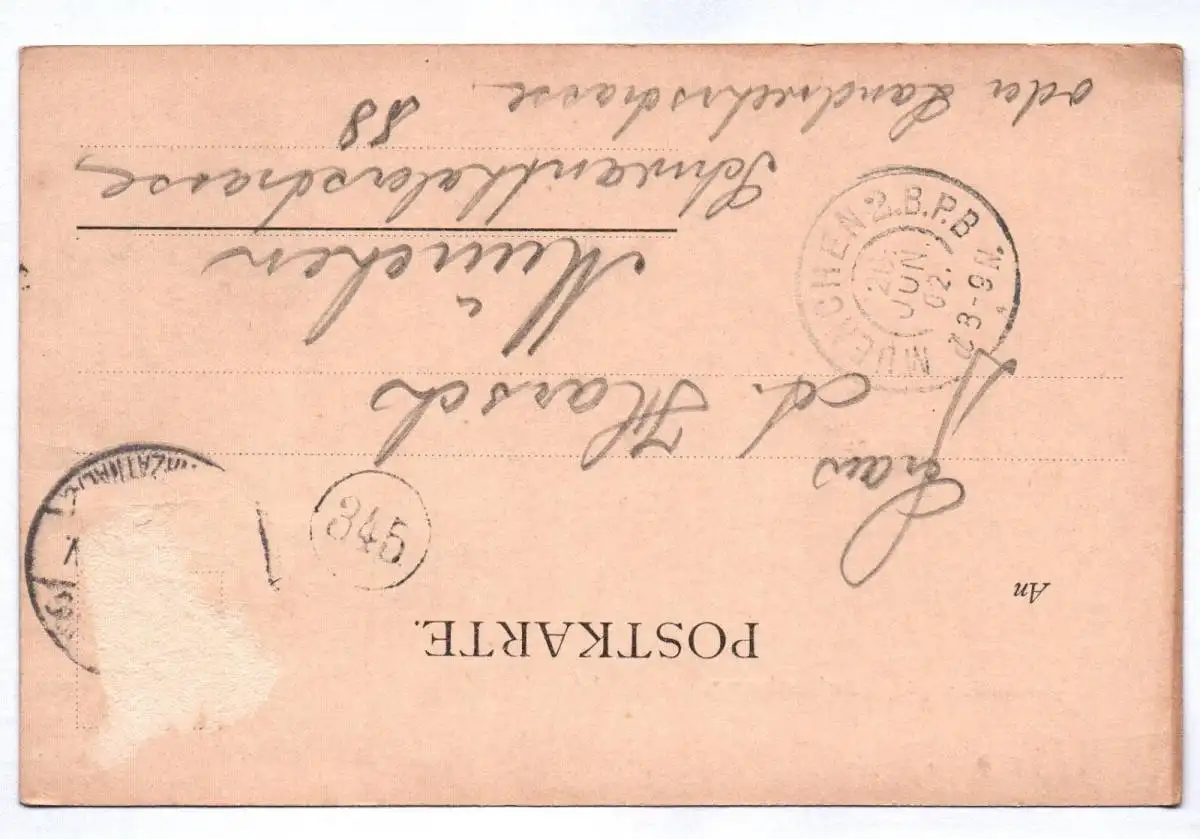 POSTKARTE.
An
345
Frau
A. Harsch
MUENCHEN 2.B.P.B
JUN
02.
8-9 N.
München
Schwanthalerstrasse
88
oder Landwehrstrasse